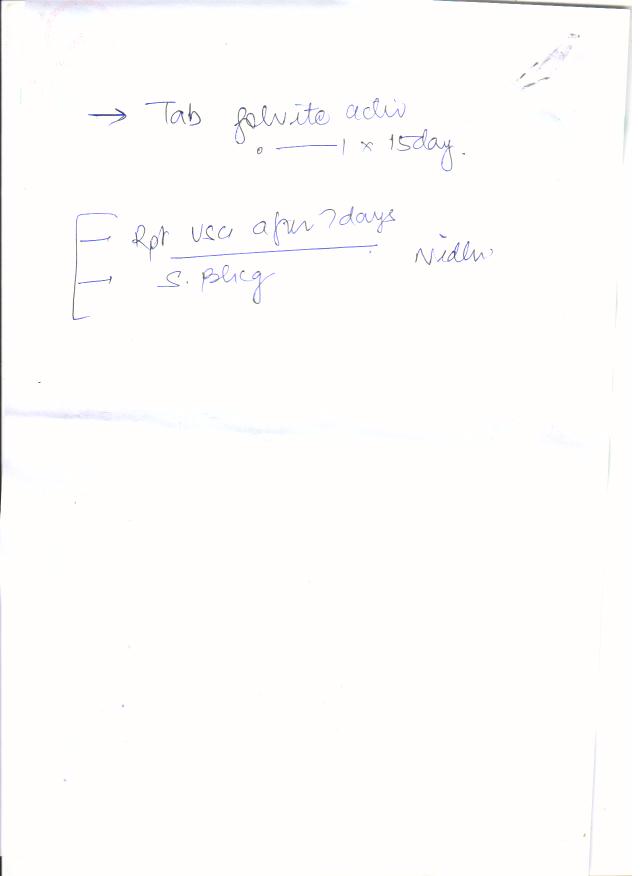 → Tab folvite activ
0 —— 1 x 15day.
Rpt USG after 7days
→ S. βhcg
Nidhi